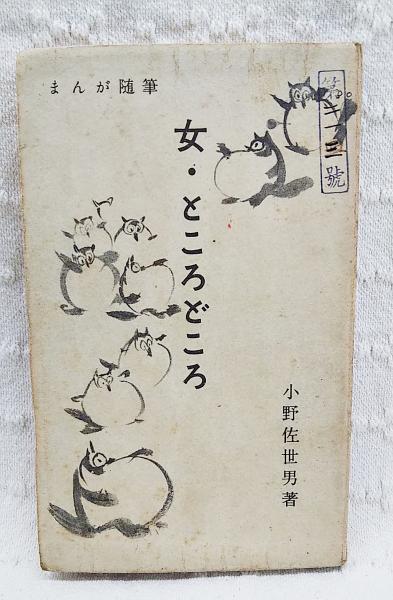 まんが随筆
女・ところどころ
小野佐世男著
第
三號